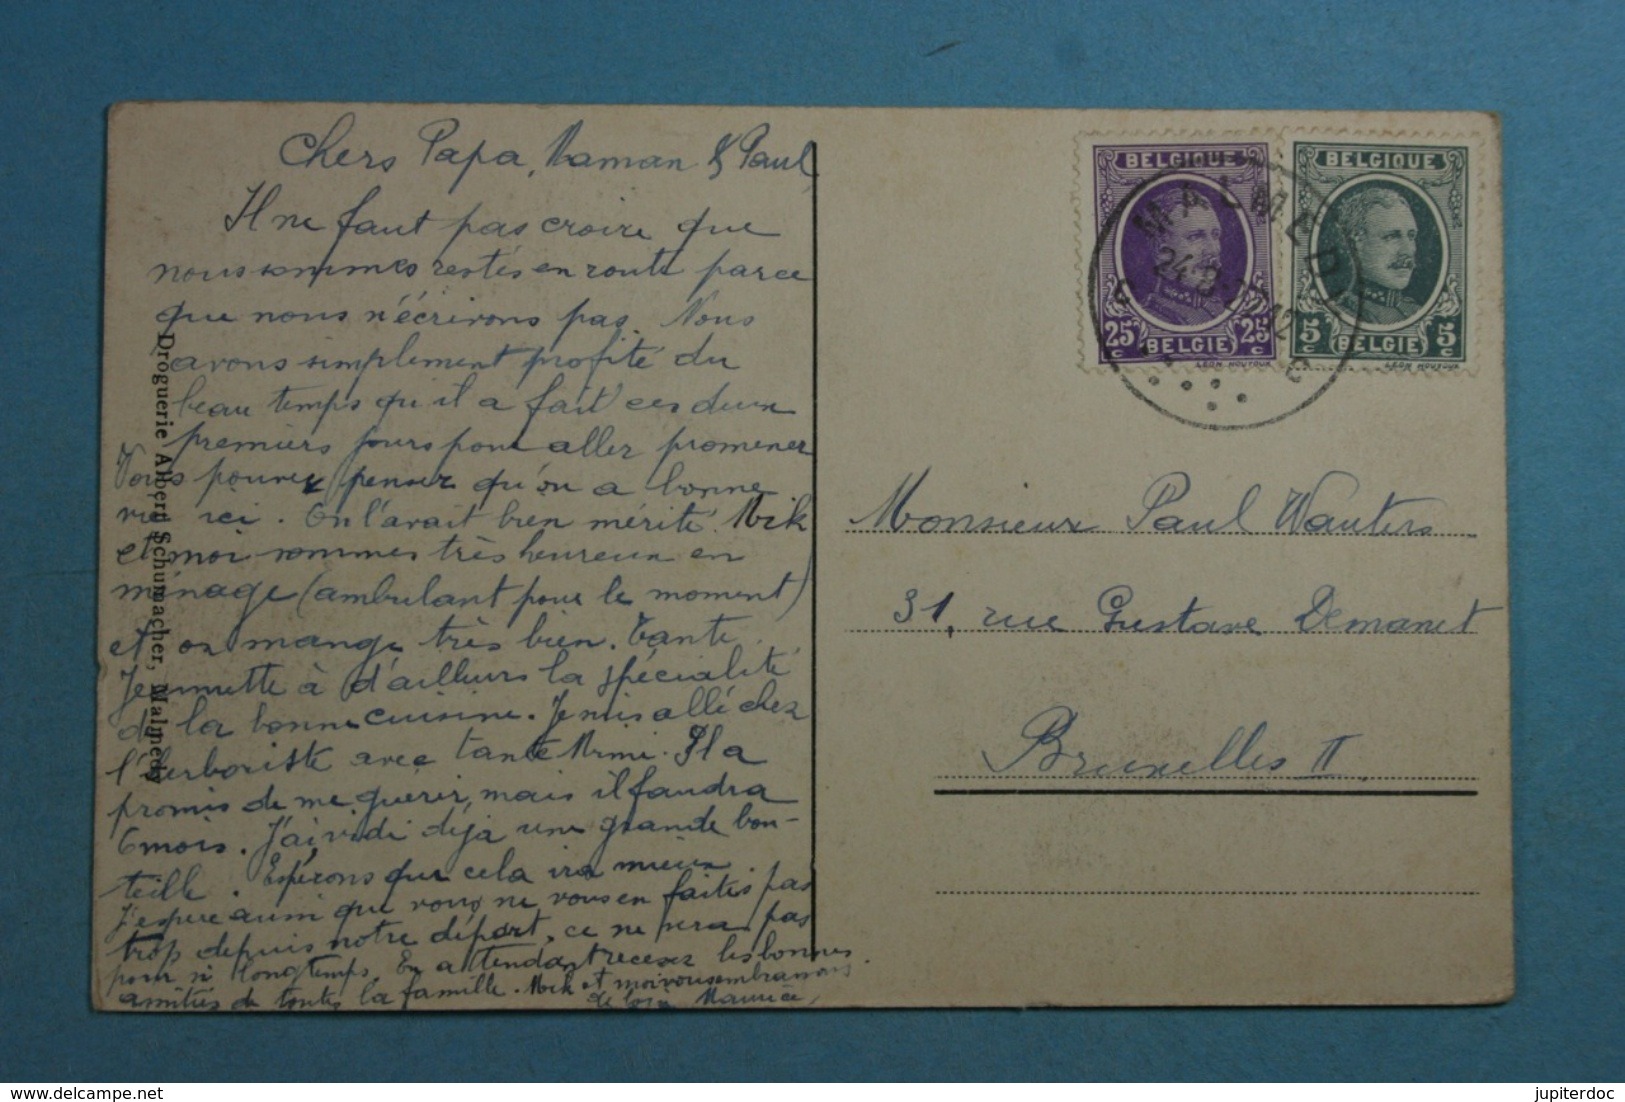 Chers Papa, Maman & Paul,
Il ne faut pas croire que
nous sommes restés en route parce
que nous n'écrivons pas. Nous
avons simplement profité du
beau temps qu'il a fait ces deux
premiers jours pour aller promener
Vous pouvez penser qu'on a bonne
vie ici. On l'avait bien mérité. Mik
et moi sommes très heureux en
ménage (ambulant pour le moment)
et on mange très bien. Tante
Jeannette à d'ailleurs la spécialité
de la bonne cuisine. Je suis allé chez
l'herboriste avec tante Mimi. Il a
promis de me guérir, mais il faudra
6 mois. J'ai vidé déjà une grande bou-
teille. Espérons que cela ira mieux
J'espère aussi que vous ne vous en faites pas
trop depuis notre départ, ce ne sera pas
pour si longtemps. En attendant recevez les bonnes
amitiés de toute la famille. Mik et moi vous embrassons
de loin Maurice,
Droguerie Albert Schumacher, Malmedy
BELGIQUE
25c 25c
BELGIE
LÉON HOUYOUX
BELGIQUE
5c 5c
BELGIE
LÉON HOUYOUX
MALMEDY
Monsieur Paul Wauters
31, rue Gustave Demanet
Bruxelles II
delcampe.net
jupiterdoc